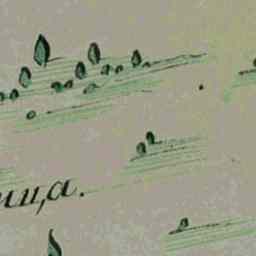 ица.